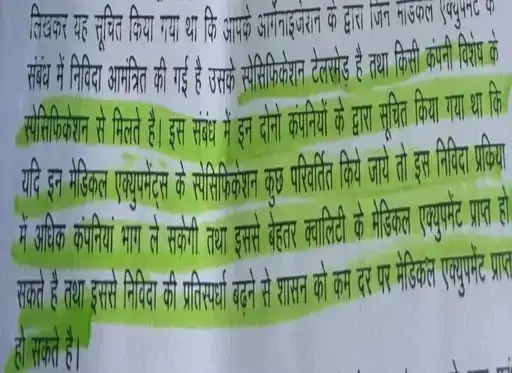 लिखकर यह सूचित किया गया था कि आपके आर्गेनाइजेशन के द्वारा जिन मेडिकल एक्युपमेंट के
संबंध में निविदा आमंत्रित की गई है उसके स्पेसिफिकेशन टेलरमेड़ है तथा किसी कंपनी विशेष के
स्पेसिफिकेशन से मिलते है। इस संबंध में इन दोनो कंपनियों के द्वारा सूचित किया गया था कि
यदि इन मेडिकल एक्युपमेंट्स के स्पेसिफिकेशन कुछ परिवर्तित किये जाये तो इस निविदा प्रक्रिया
में अधिक कंपनिया भाग ले सकेगी तथा इससे बेहतर क्वालिटी के मेडिकल एक्युपमेंट प्राप्त हो
सकते है तथा इससे निविदा की प्रतिस्पर्धा बढ़ने से शासन को कम दर पर मेडिकल एक्युपमेंट प्राप्त
हो सकते है।